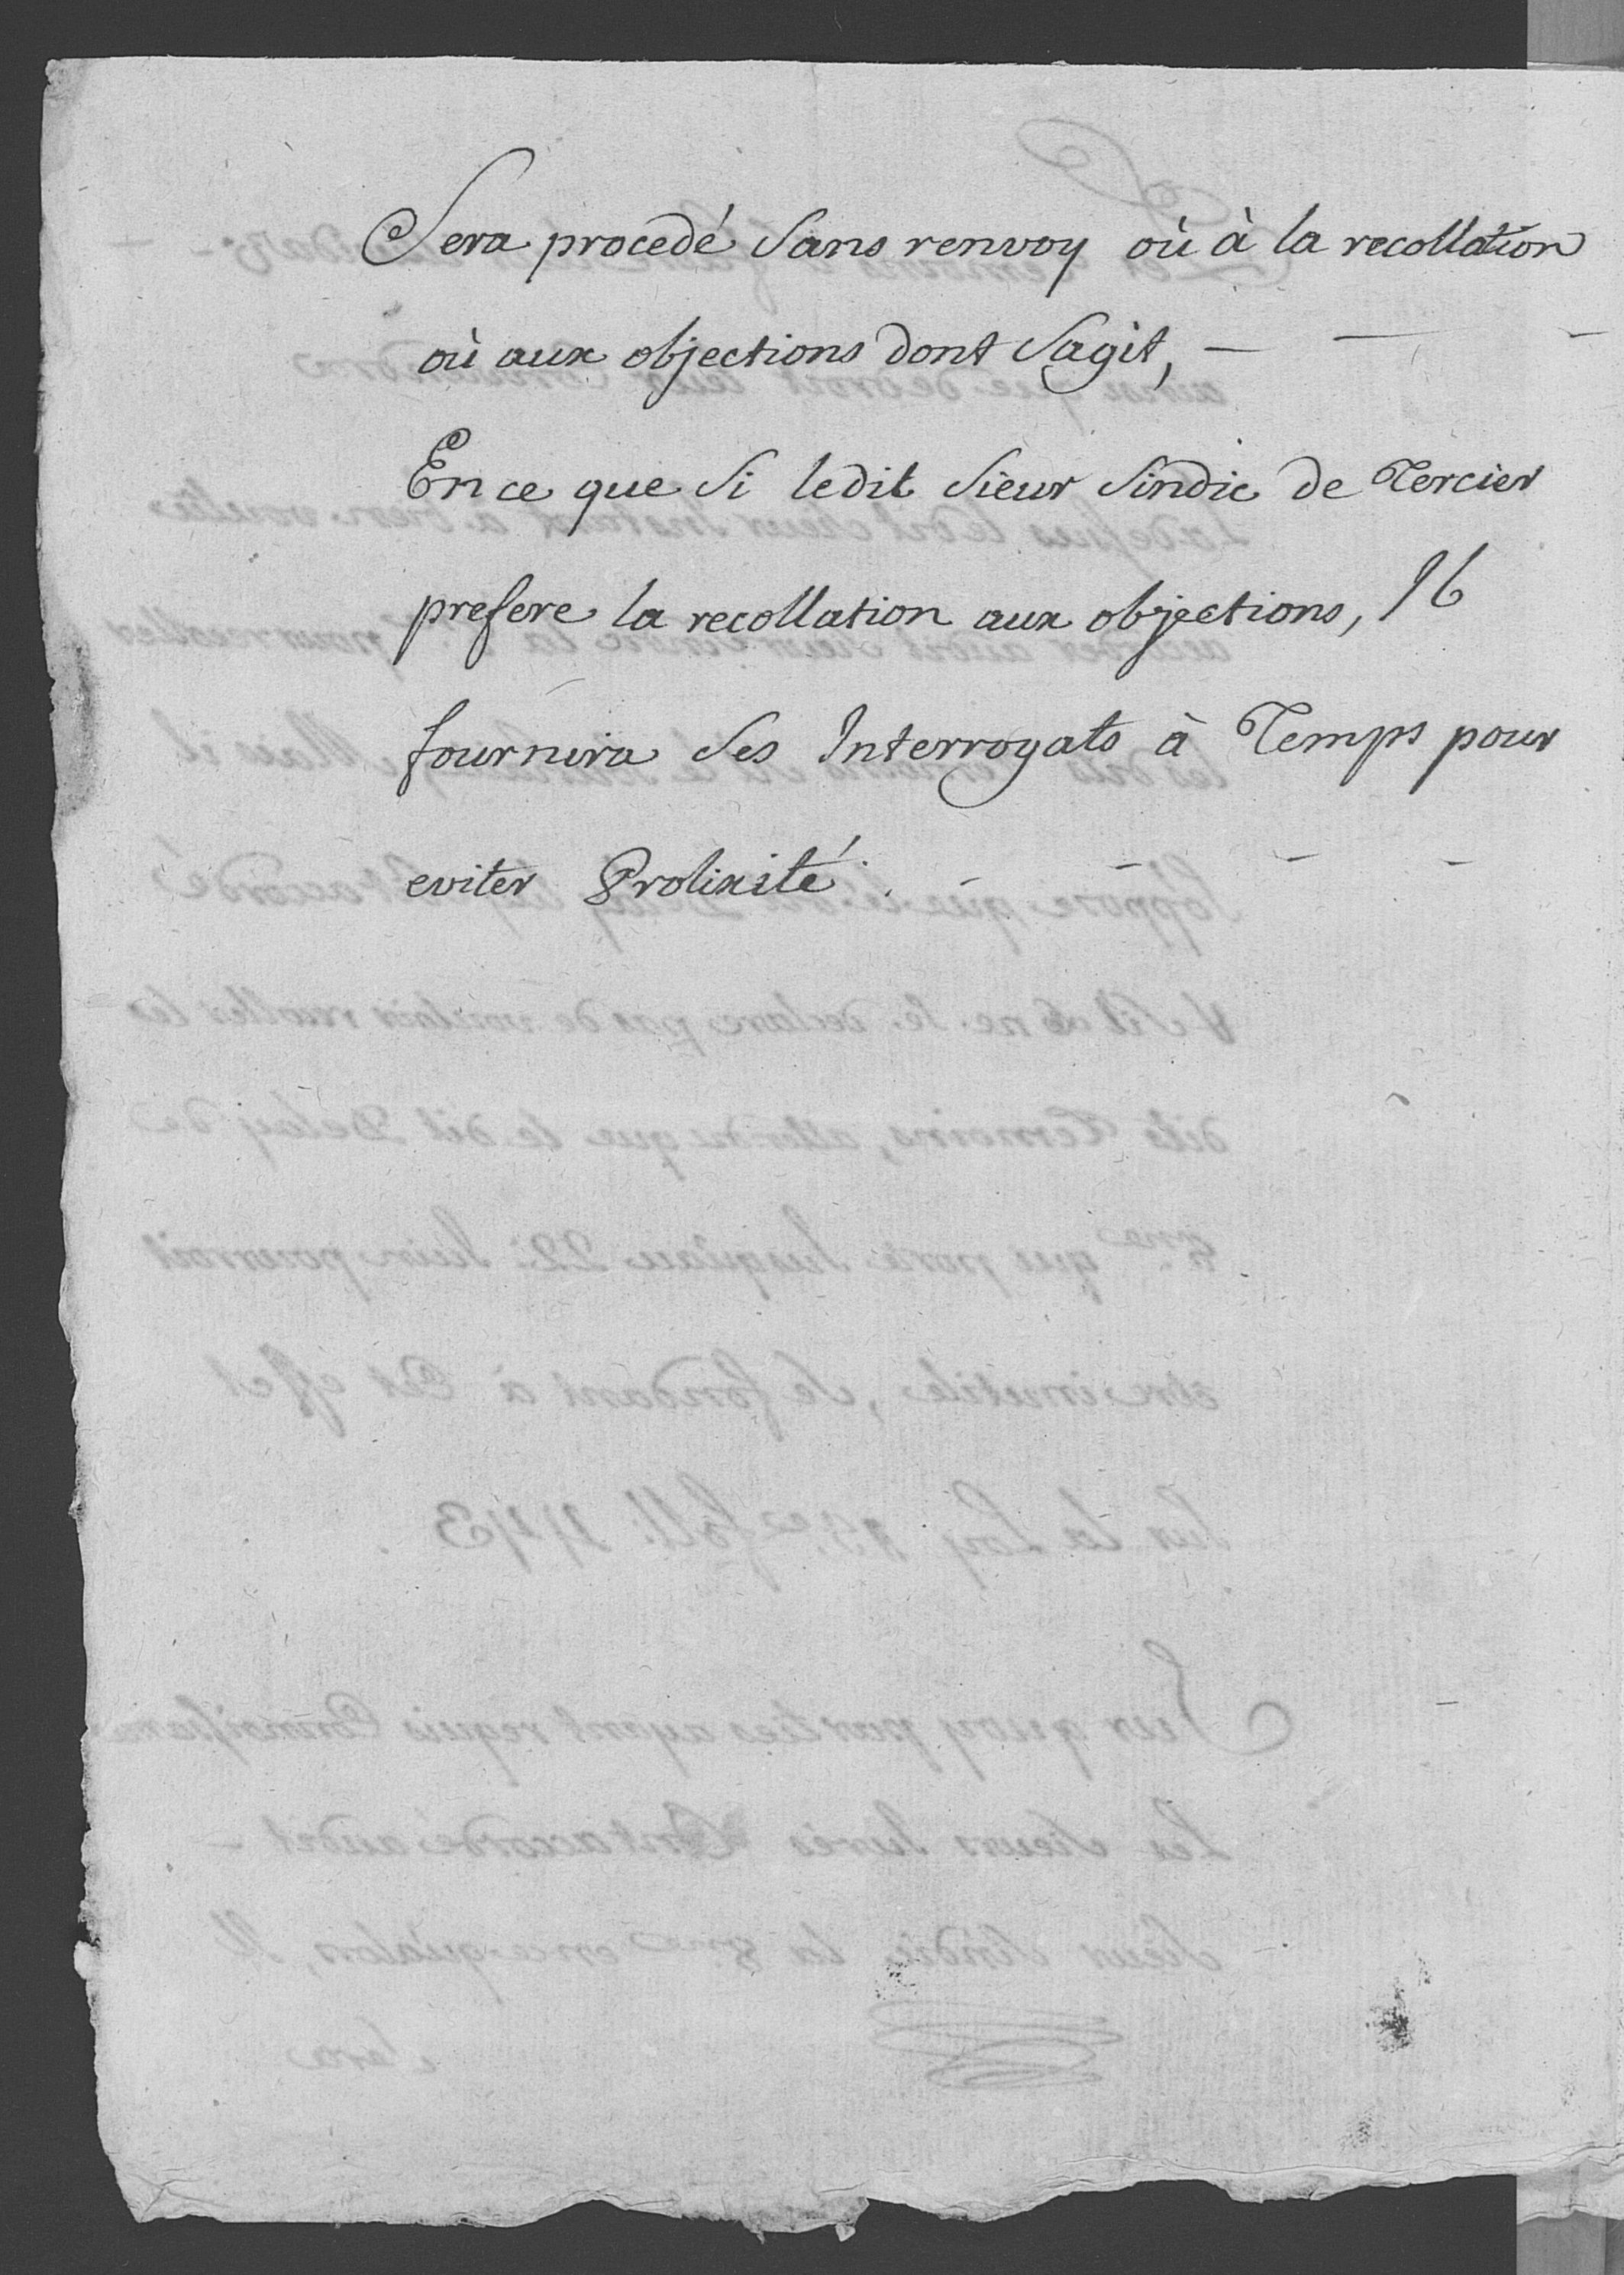 Sera procedé Sans renvoy où à la recollation
où aux objections dont Sagit, — — —
En ce que Si ledit Sieur Sindic de Tercier
prefere la recollation aux objections, Il
fournira Ses Interrogats à Temps pour
eviter Prolixité. — — — —